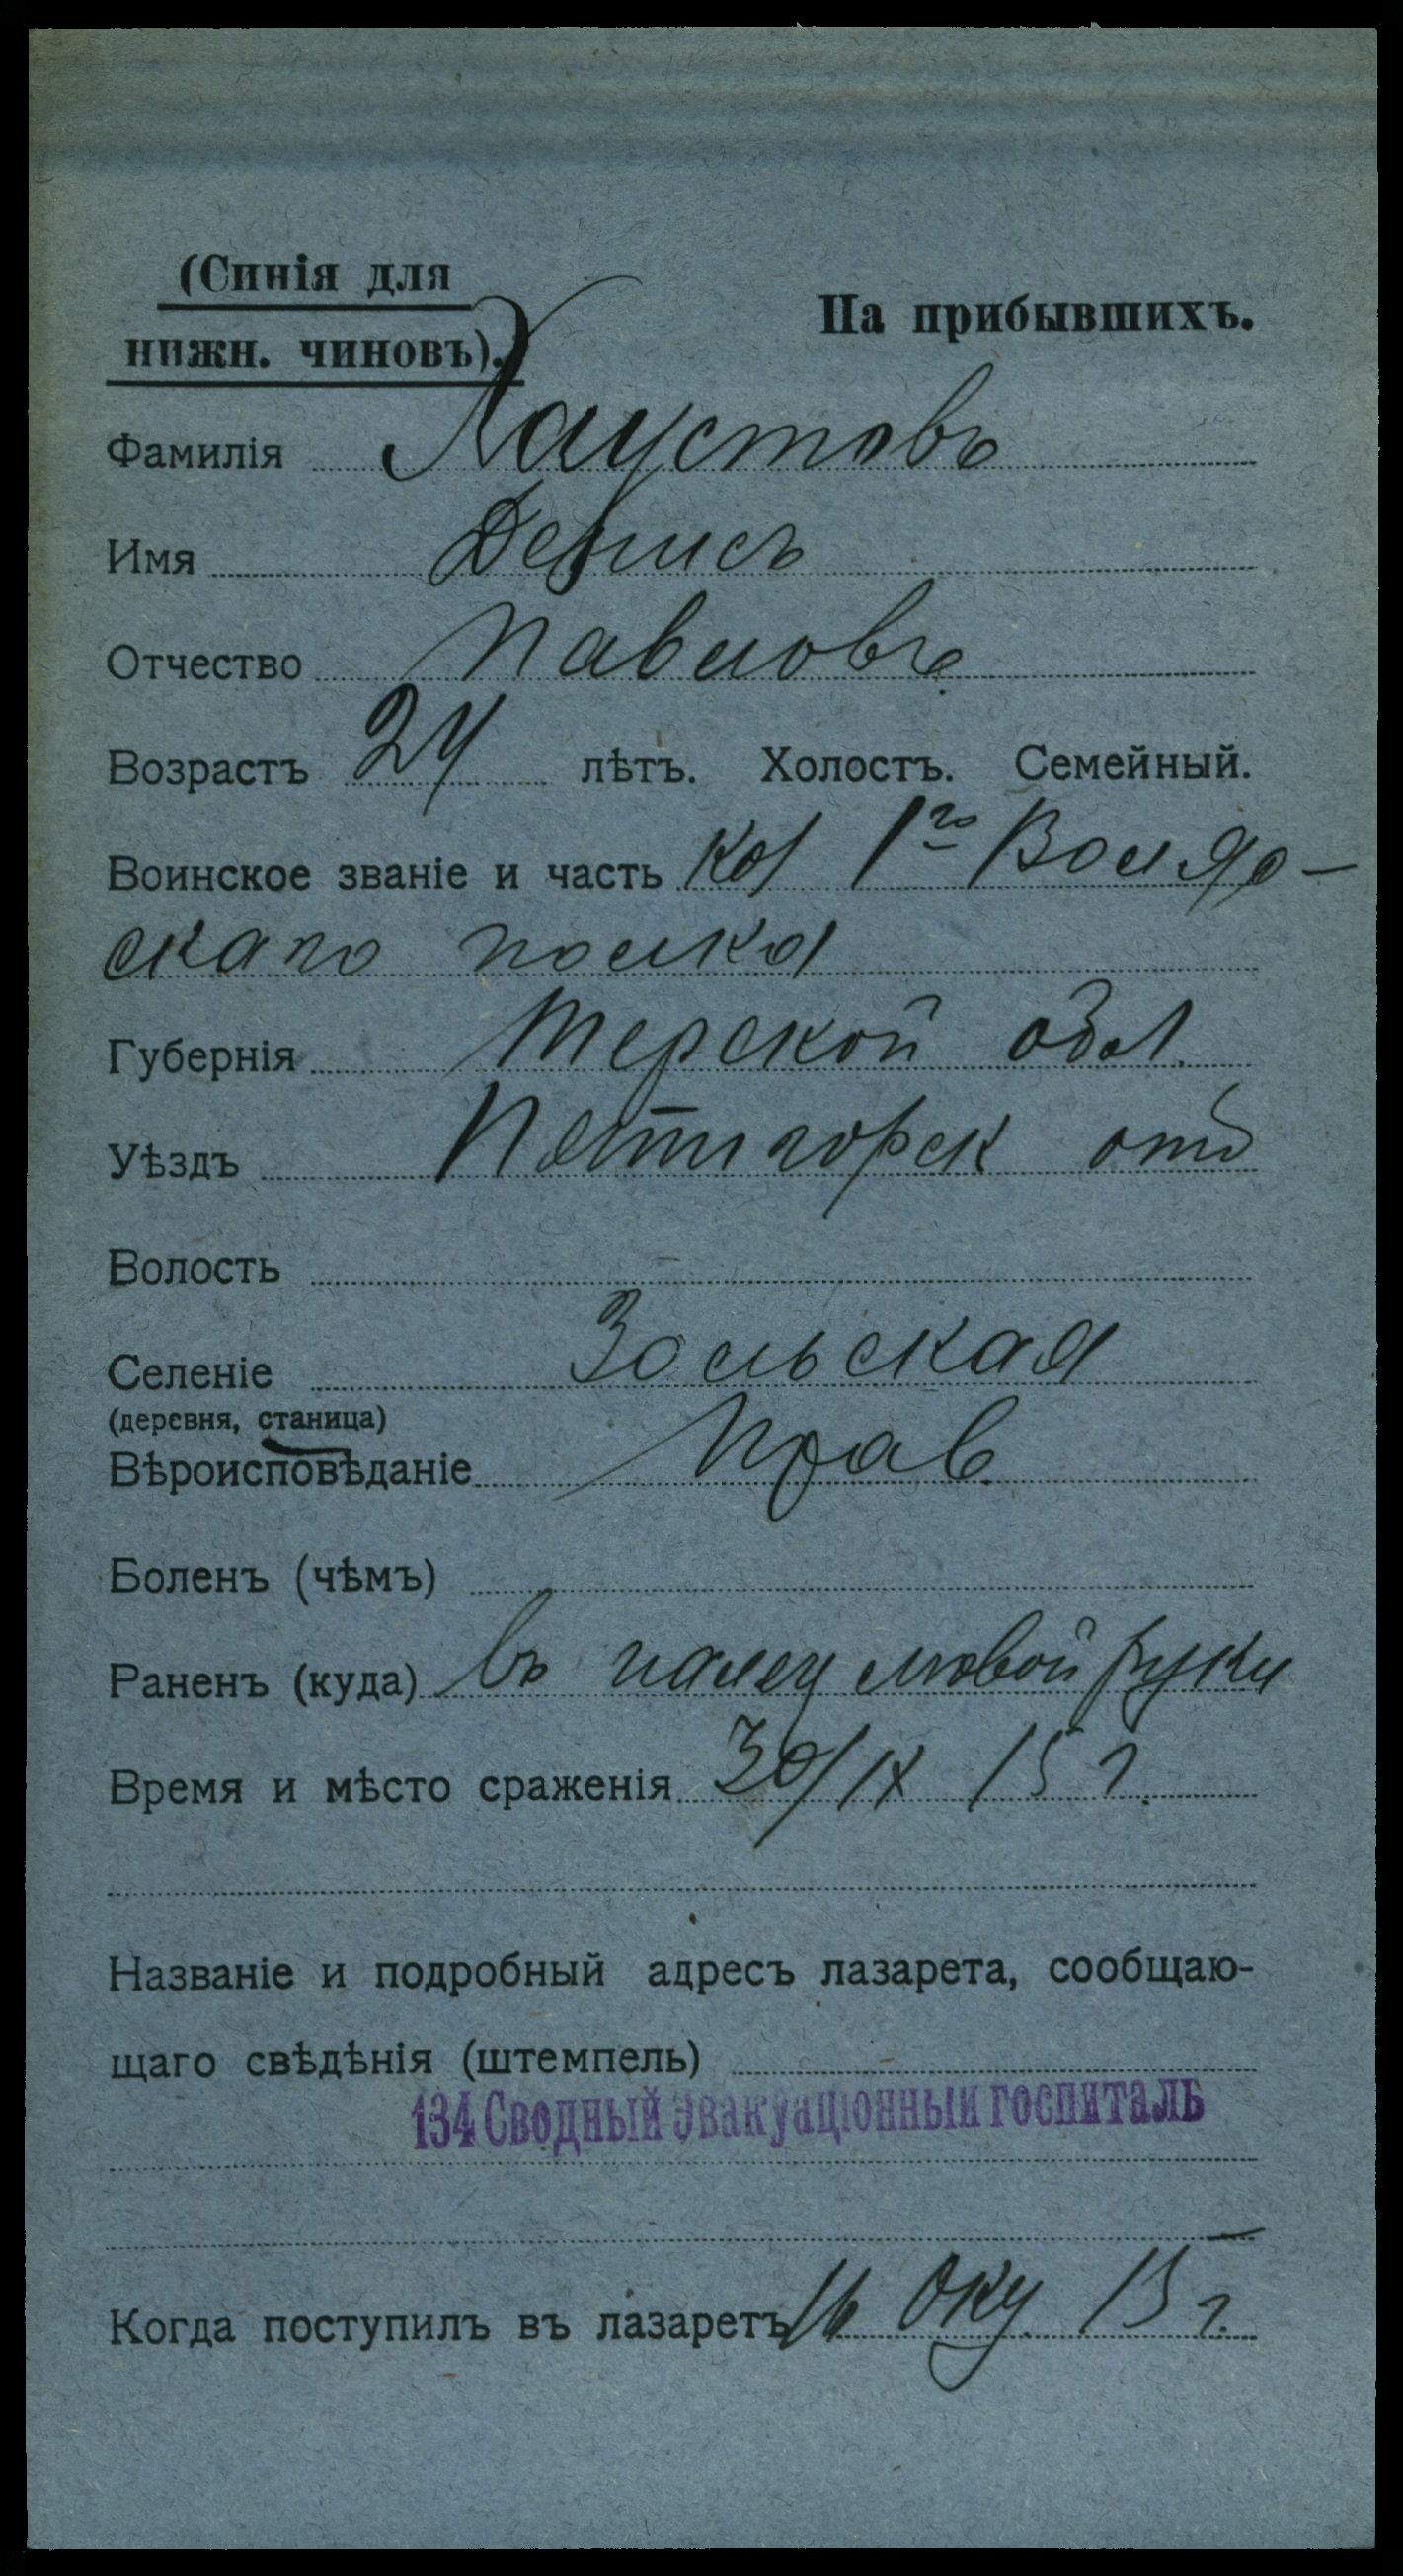 (Синія для
нижн. чиновъ).
На прибывшихъ.
Фамилія Хаустовъ
Имя Денисъ
Отчество Павловъ
Возрастъ 24 лѣтъ. Холостъ. Семейный.
Воинское званіе и часть каз 1го Волж-
скаго полка
Губернія Терской обл.
Уѣздъ Пятигорск отд
Волость
Селеніе Зольская
(деревня, станица)
Вѣроисповѣданіе Прав
Боленъ (чѣмъ)
Раненъ (куда) въ палец лѣвой руки
Время и мѣсто сраженія 30/IX 15 г.
Названіе и подробный адресъ лазарета, сообщаю-
щаго свѣдѣнія (штемпель)
134 Сводный эвакуаціонный госпиталь
Когда поступилъ въ лазаретъ 16 Окт 15 г.